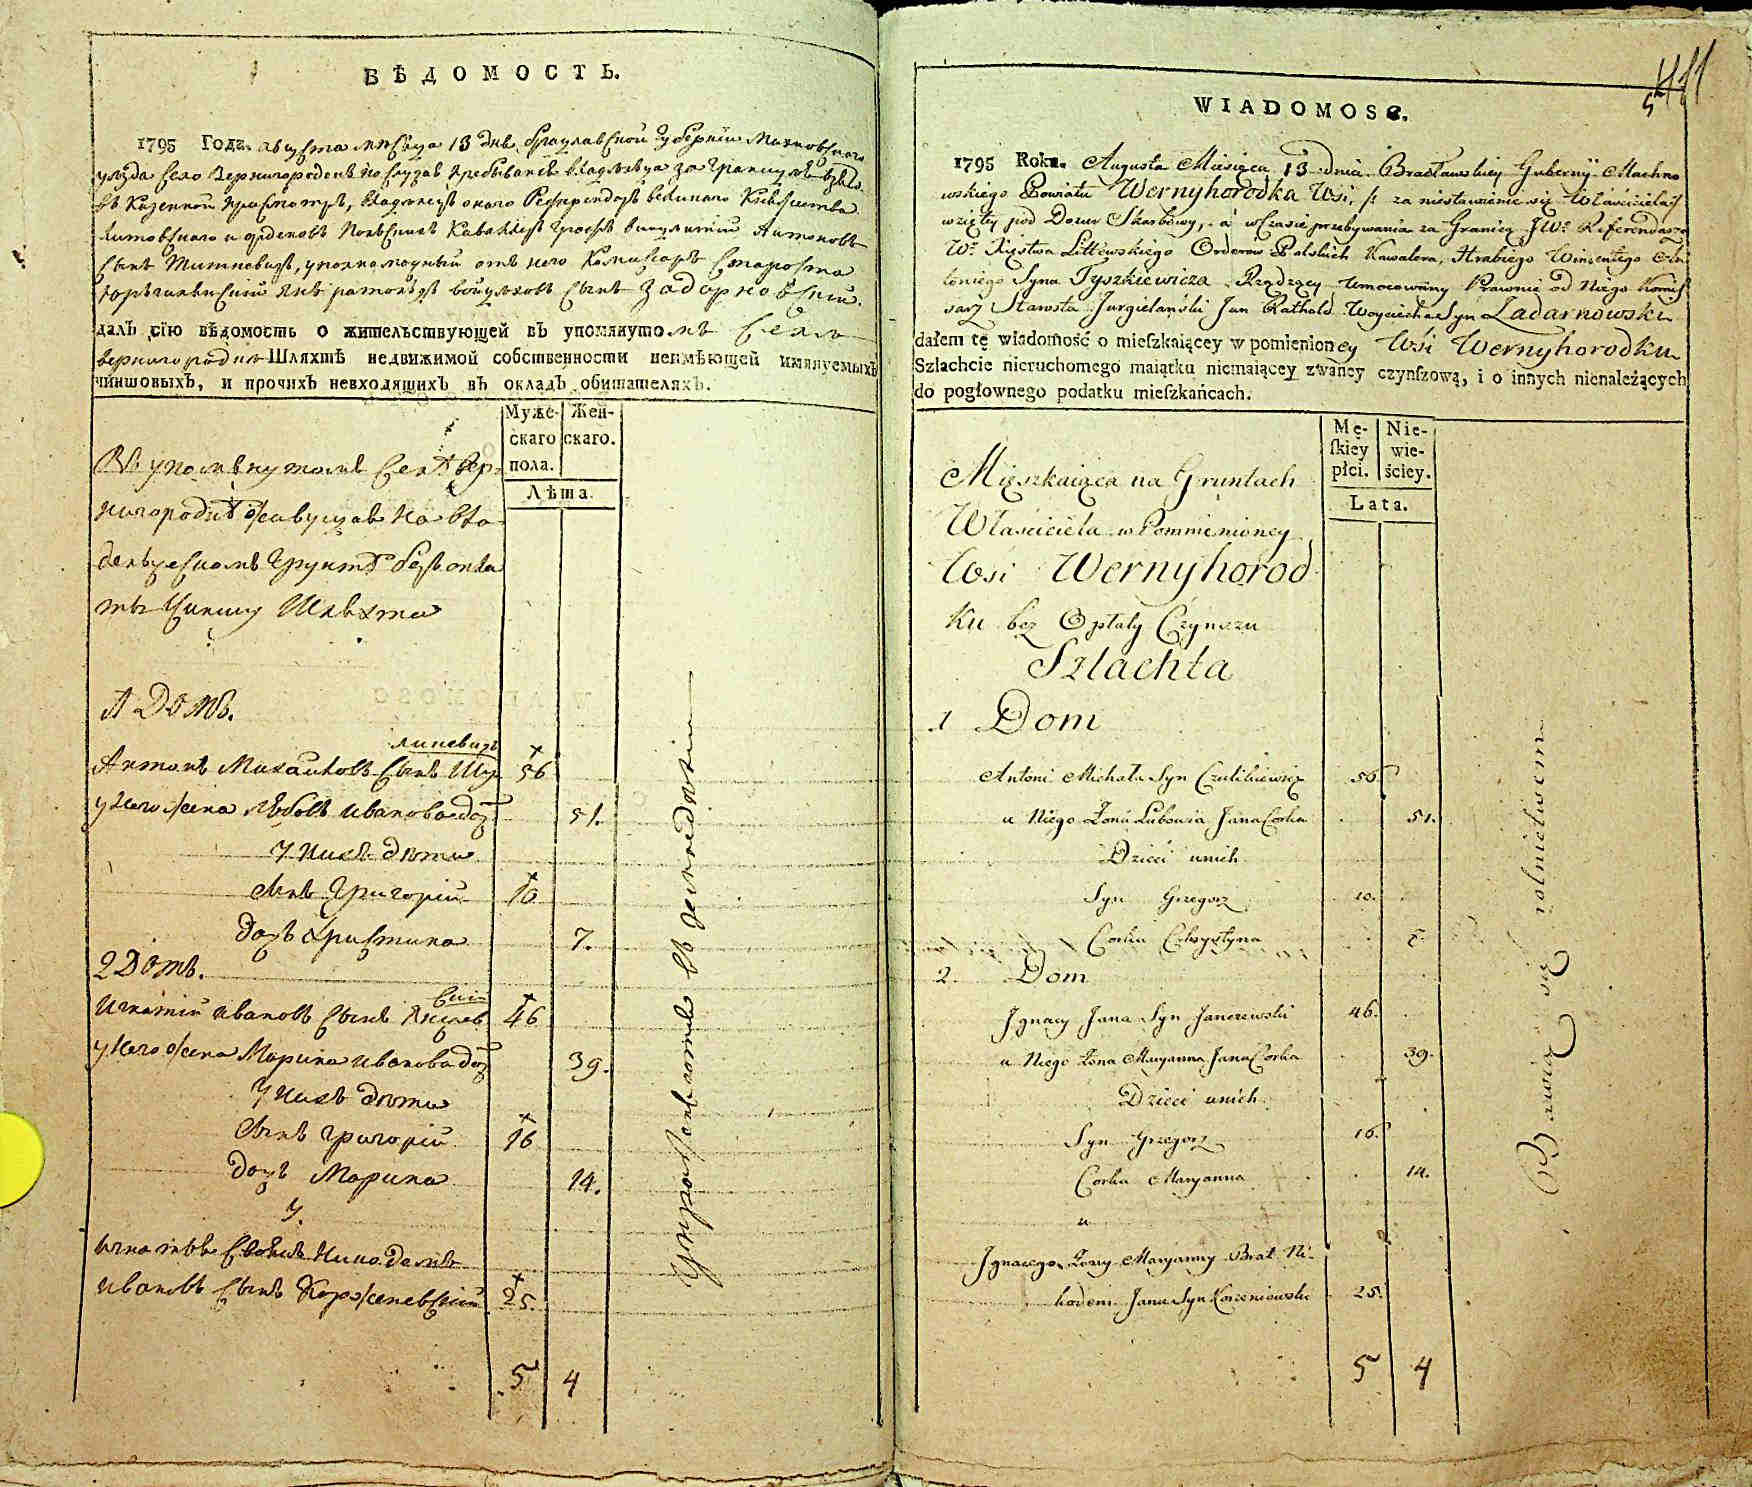 ВѢДОМОСТЬ.
1795 Годъ. августа мѣсяца 13 дня Брацлавской Губернїи Махновскаго
уѣзда село Вернигородокъ по случаю пребыванїя владѣльца за границею взято
въ казенной присмотръ, владѣнїя Великаго Княжества
Литовскаго и орденовъ Польскихъ Кавалера Графа Викентїя Антонова
сына Тишкевича, уполномочный отъ него Комисаръ Староста
Янъ войцѣховъ сынъ Задарновскїй.
далъ сїю вѣдомость о жительствующей въ упомянутомъ Селѣ
Вернигородкѣ Шляхтѣ недвижимой собственности неимѣющей имянуемыхъ
чиншовыхъ, и прочихъ невходящихъ въ окладъ обитателяхъ.
Муже- Жен-
скаго скаго.
пола.
Лѣта.
Въ упомянутомъ Селѣ Вер-
нигородкѣ живущая на вла-
дельческомъ Грунтѣ безъ опла-
ты Чиншу Шляхта
1 Домъ.
линевичъ
Антонъ Михайловъ Сынъ Шу 56
у Него жена Любовь Иванова дочь 51.
У нихъ дети
Сынъ Григорїй 10
Дочь Христина 7.
2 Домъ.
Скїй
Игнатїй Ивановъ Сынъ Янчев 46
у Него жена Марина Иванова дочь 39.
У нихъ дети
Сынъ Григорїй 16
Дочь Марина 14.
У
Игнатїя Никодимъ
Ивановъ Сынъ Корженевскїй 25.
5 4
Упражняются въ земледѣлїи
411
5
WIADOMOSC.
1795 Roku. Augusta Miesiąca 13 dnia Bracławskiey Guberny Machno
wskiego Powiatu Wernyhorodka Wsi, za niestawienie się Właściciela
wzięty pod Dozur Skarbowy, a wczasie przebywania za Granicą JW⁰ Referendarza
W⁰ Xięstwa Littewskiego Orderow Polskich Kawalera, Hrabiego Wincentego An
toniego Syna Tyszkiewicza Rządzący Umocowany Prawnie od Niego Komis
sarz Starosta Jurgielański Jan Rathold Woyciecha Syn Zadarnowski
dałem tę wiadomość o mieſzkaiącey w pomienioney Wsi Wernyhorodku
Szlachcie nieruchomego maiątku niemaiącey zwaney czynſzową, i o innych nienależących
do pogłownego podatku mieſzkańcach.
Mę- Nie-
ſkiey wie-
płci. ściey.
Lata.
Mięszkaiąca na Gruntach
Właściciela w Pomnienioney
Wsi Wernyhorod
ku bez Opłaty Czynszu
Szlachta
1 Dom
Antoni Michała Syn Czuliliniewicz 56
u Niego Żona Lubowia Jana Corka 51.
Dzieci unich
Syn Grzegorz 10.
Corka Chrystyna 7.
2. Dom
Jgnacy Jana Syn Janczewski 46.
u Niego Żona Maryanna Jana Corka 39.
Dzieci unich
Syn Grzegorz 16.
Corka Maryanna 14.
u
Jgnacego Żony Maryanny Brat Ni-
kodem Jana Syn Korzeniowski 25.
5 4
Bawią się rolnictwem